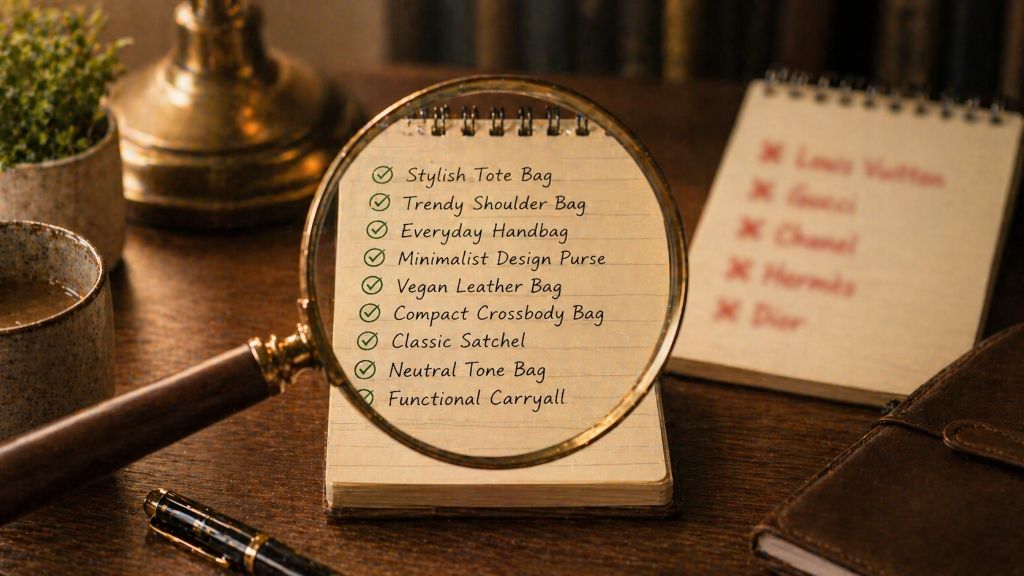 Stylish Tote Bag
Trendy Shoulder Bag
Everyday Handbag
Minimalist Design Purse
Vegan Leather Bag
Compact Crossbody Bag
Classic Satchel
Neutral Tone Bag
Functional Carryall
Louis Vuitton
Gucci
Chanel
Hermès
Dior